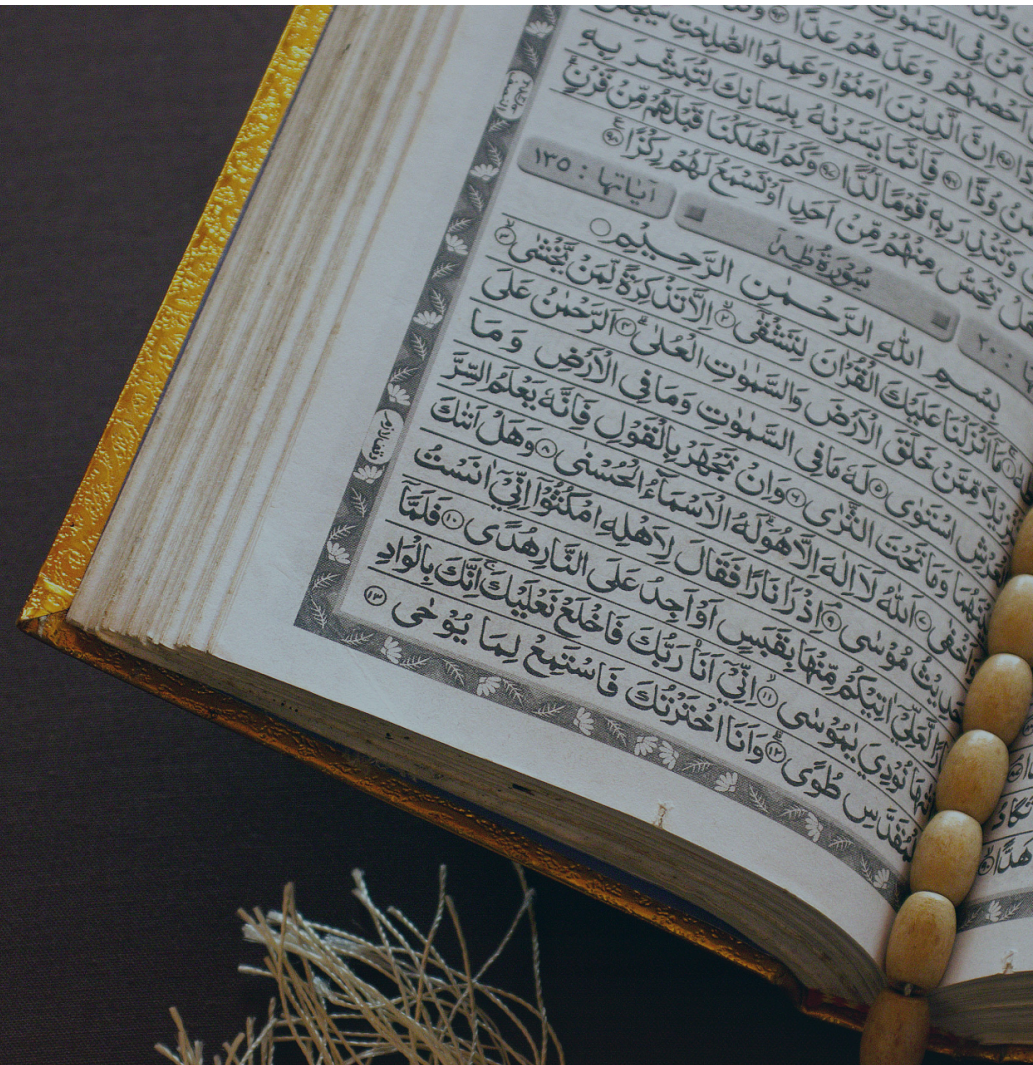 مَنْ فِي السَّمٰوٰتِ
اَحْصٰىهُمْ وَعَدَّهُمْ عَدًّا
اِنَّ الَّذِيْنَ اٰمَنُوْا وَعَمِلُوا الصّٰلِحٰتِ سَيَجْعَلُ
وُدًّا ۹۶ فَاِنَّمَا يَسَّرْنٰهُ بِلِسَانِكَ لِتُبَشِّرَ بِهِ
وَتُنْذِرَ بِهٖ قَوْمًا لُّدًّا ۹۷ وَكَمْ اَهْلَكْنَا قَبْلَهُمْ مِّنْ قَرْنٍ
تُحِسُّ مِنْهُمْ مِّنْ اَحَدٍ اَوْ تَسْمَعُ لَهُمْ رِكْزًا ۹۸
: ۲۰ سُوْرَةُ طٰهٰ اٰيَاتُهَا : ۱۳۵
بِسْمِ اللّٰهِ الرَّحْمٰنِ الرَّحِيْمِ
۱ مَاۤ اَنْزَلْنَا عَلَيْكَ الْقُرْاٰنَ لِتَشْقٰۤى ۲ اِلَّا تَذْكِرَةً لِّمَنْ يَّخْشٰى ۳
مِّمَّنْ خَلَقَ الْاَرْضَ وَالسَّمٰوٰتِ الْعُلٰى ۴ اَلرَّحْمٰنُ عَلَى
اسْتَوٰى ۵ لَهٗ مَا فِي السَّمٰوٰتِ وَمَا فِي الْاَرْضِ وَمَا
بَيْنَهُمَا وَمَا تَحْتَ الثَّرٰى ۶ وَاِنْ تَجْهَرْ بِالْقَوْلِ فَاِنَّهٗ يَعْلَمُ السِّرَّ
وَاَخْفٰى ۷ اَللّٰهُ لَاۤ اِلٰهَ اِلَّا هُوَ لَهُ الْاَسْمَآءُ الْحُسْنٰى ۸ وَهَلْ اَتٰىكَ
حَدِيْثُ مُوْسٰى ۹ اِذْ رَاٰ نَارًا فَقَالَ لِاَهْلِهِ امْكُثُوْۤا اِنِّيْۤ اٰنَسْتُ
نَارًا لَّعَلِّيْۤ اٰتِيْكُمْ مِّنْهَا بِقَبَسٍ اَوْ اَجِدُ عَلَى النَّارِ هُدًى ۱۰ فَلَمَّاۤ
اَتٰىهَا نُوْدِيَ يٰمُوْسٰى ۱۱ اِنِّيْۤ اَنَا رَبُّكَ فَاخْلَعْ نَعْلَيْكَ اِنَّكَ بِالْوَادِ
الْمُقَدَّسِ طُوًى ۱۲ وَاَنَا اخْتَرْتُكَ فَاسْتَمِعْ لِمَا يُوْحٰى ۱۳
هَدًّا